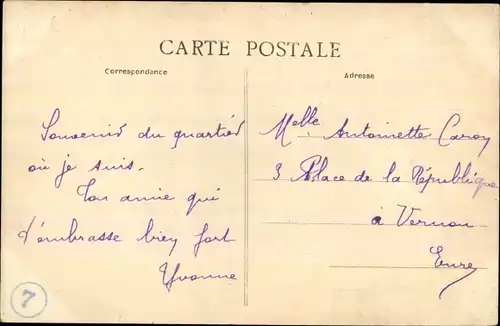 CARTE POSTALE
Correspondance
Adresse
Souvenir du quartier
où je suis.
Ton amie qui
t'embrasse bien fort
Yvonne
Melle Antoinette Caron
3 Place de la République
à Vernon
Eure
7